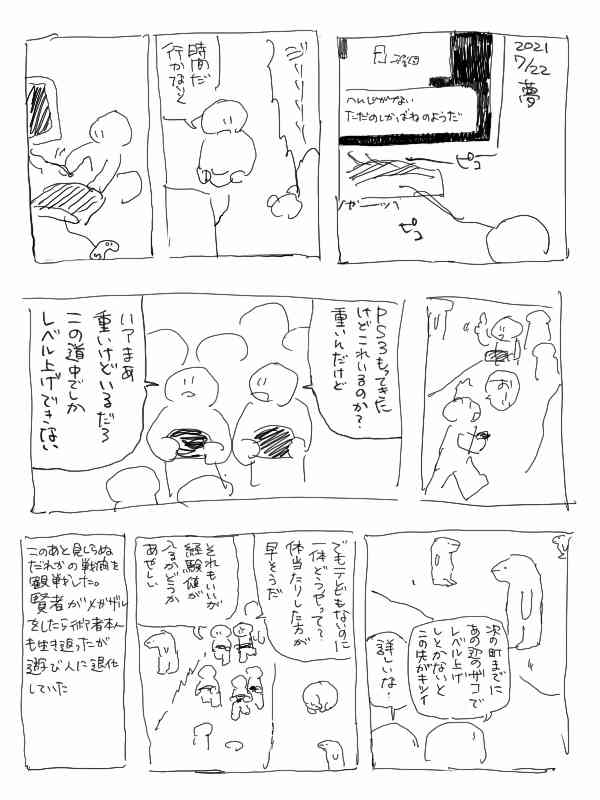 2021
7/22
夢
へんじがない
ただのしかばねのようだ
ピコ
ピコ
ジーーーー
時間だ
行かないと
おーい
PS3もってきた
けどこれいるのか?
重いんだけど
いアまあ
重いけどいるだろ
この道中でしか
レベル上げできない
次の町までに
あの辺のザコで
レベル上げ
しとかないと
この先がキツイ
詳しいな
でもTVどもないのに
一体どうやって?
体当たりした方が
早そうだ
それもいいが
経験値が
入るかどうか
あやしい
このあと見しらぬ
だれかの戦闘を
観戦した。
賢者がメガザル
をしたら術者本人
も生き返ったが
遊び人に退化
していた